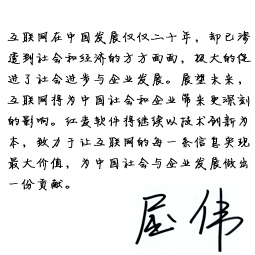 互联网在中国发展仅仅二十年，却已渗
透到社会和经济的方方面面，极大的促
进了社会进步与企业发展。展望未来，
互联网将为中国社会和企业带来更深刻
的影响。红麦软件将继续以技术创新为
本，致力于让互联网的每一条信息实现
最大价值，为中国社会与企业发展做出
一份贡献。
屈伟